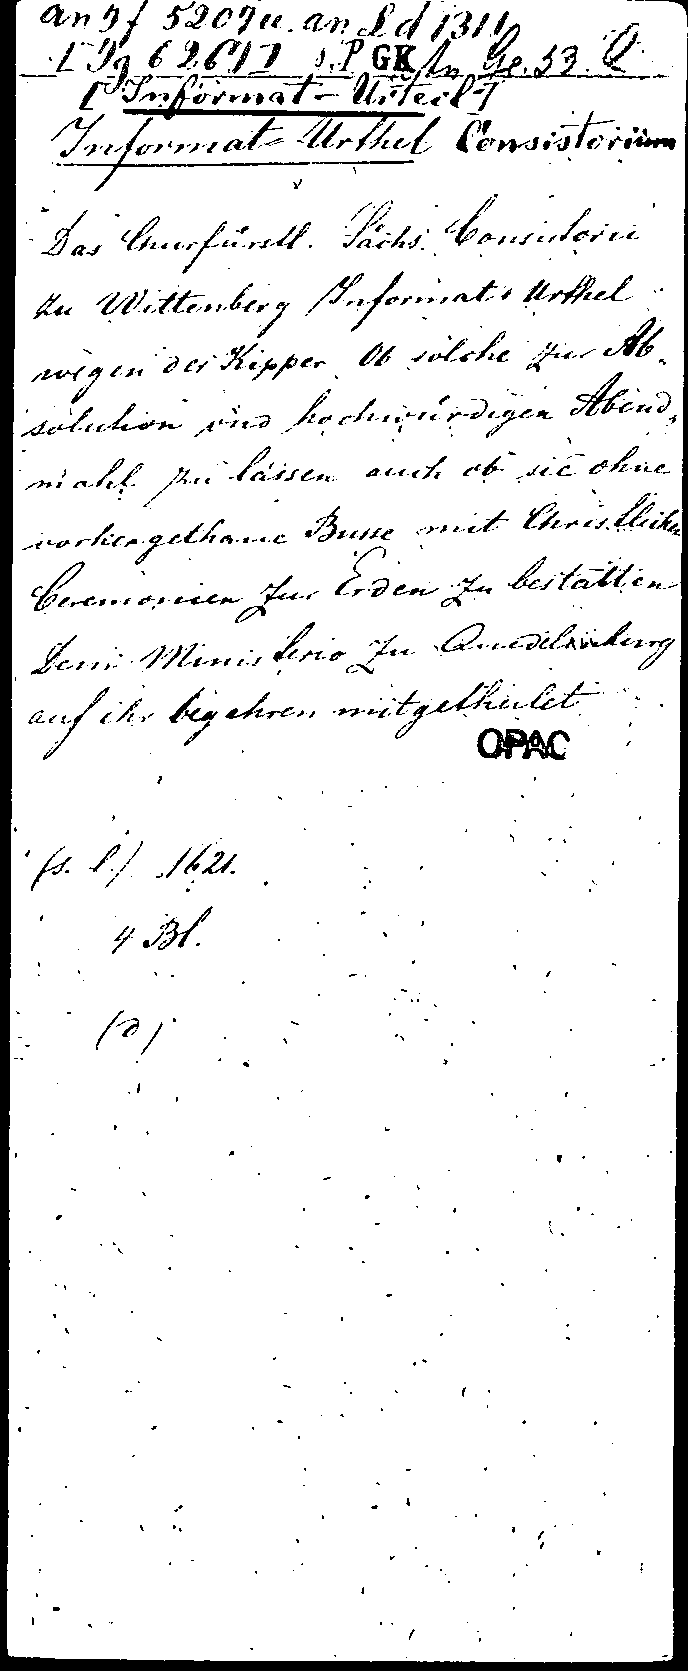 an Yf 5207 u. an Ld 1311
[Yg 6261] s. P GK An Ge. 53. Q
[Informat-Urteil]
Informat-Urthel Consistorium
Das Churfürstl. Sächs. Consistorii
zu Wittenberg Informat-Urthel
wegen der Kipper Ob solche zur Ab-
solution und hochwürdigen Abend-
mahl zu lassen auch ob sie ohne
vorhergethane Busse mit Christlichen
Ceremonien zur Erden zu bestatten
Dem Ministerio zu Quedelinburg
auf ihr begehren mitgetheilet
OPAC
(s. l.) 1621.
4 Bl.
(d)